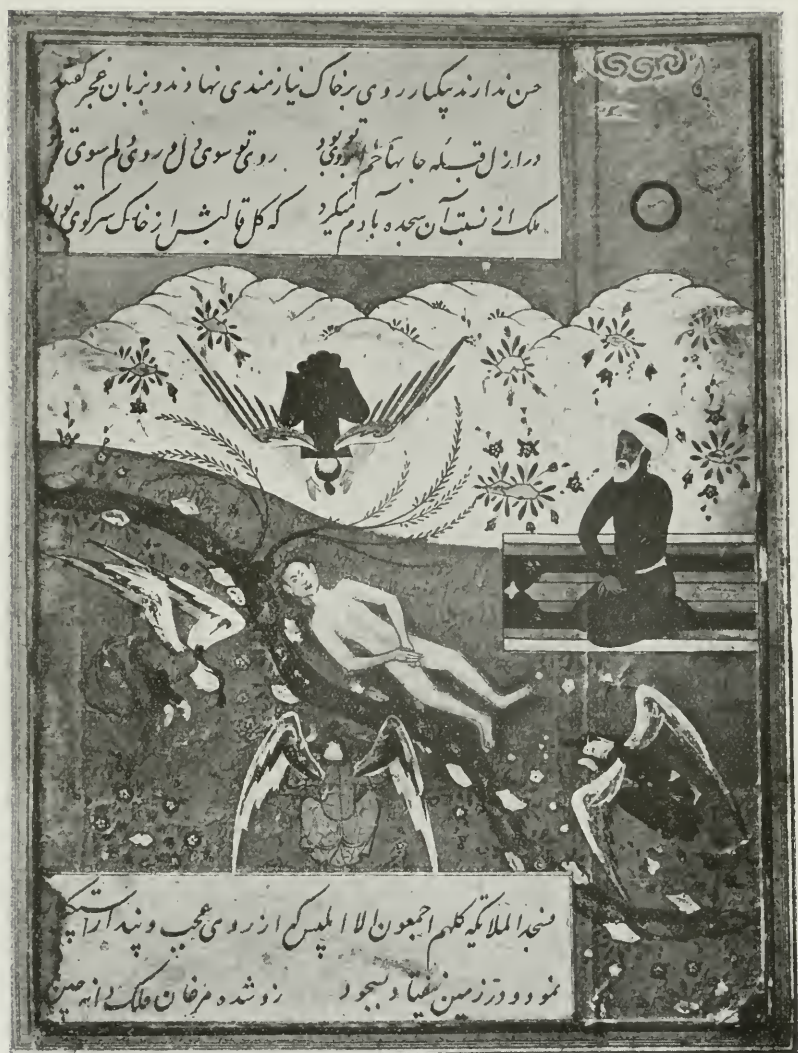 حسن ندارند یکبار روی بر خاک نیازمندی نهادند و بزبان عجز
در ازل قبله جانها خم ابروی تو بود روی تو سوی دل و روی دلم سوی تو
ملک از نسبت آن سجده بآدم میکرد که کل قالبش از خاک سر کوی تو بود
فسجد الملائکه کلهم اجمعون الا ابلیس که از روی عجب و پندار
نمود و در زمین نیفتاد بسجود زو شده مرغان فلک دانه چین